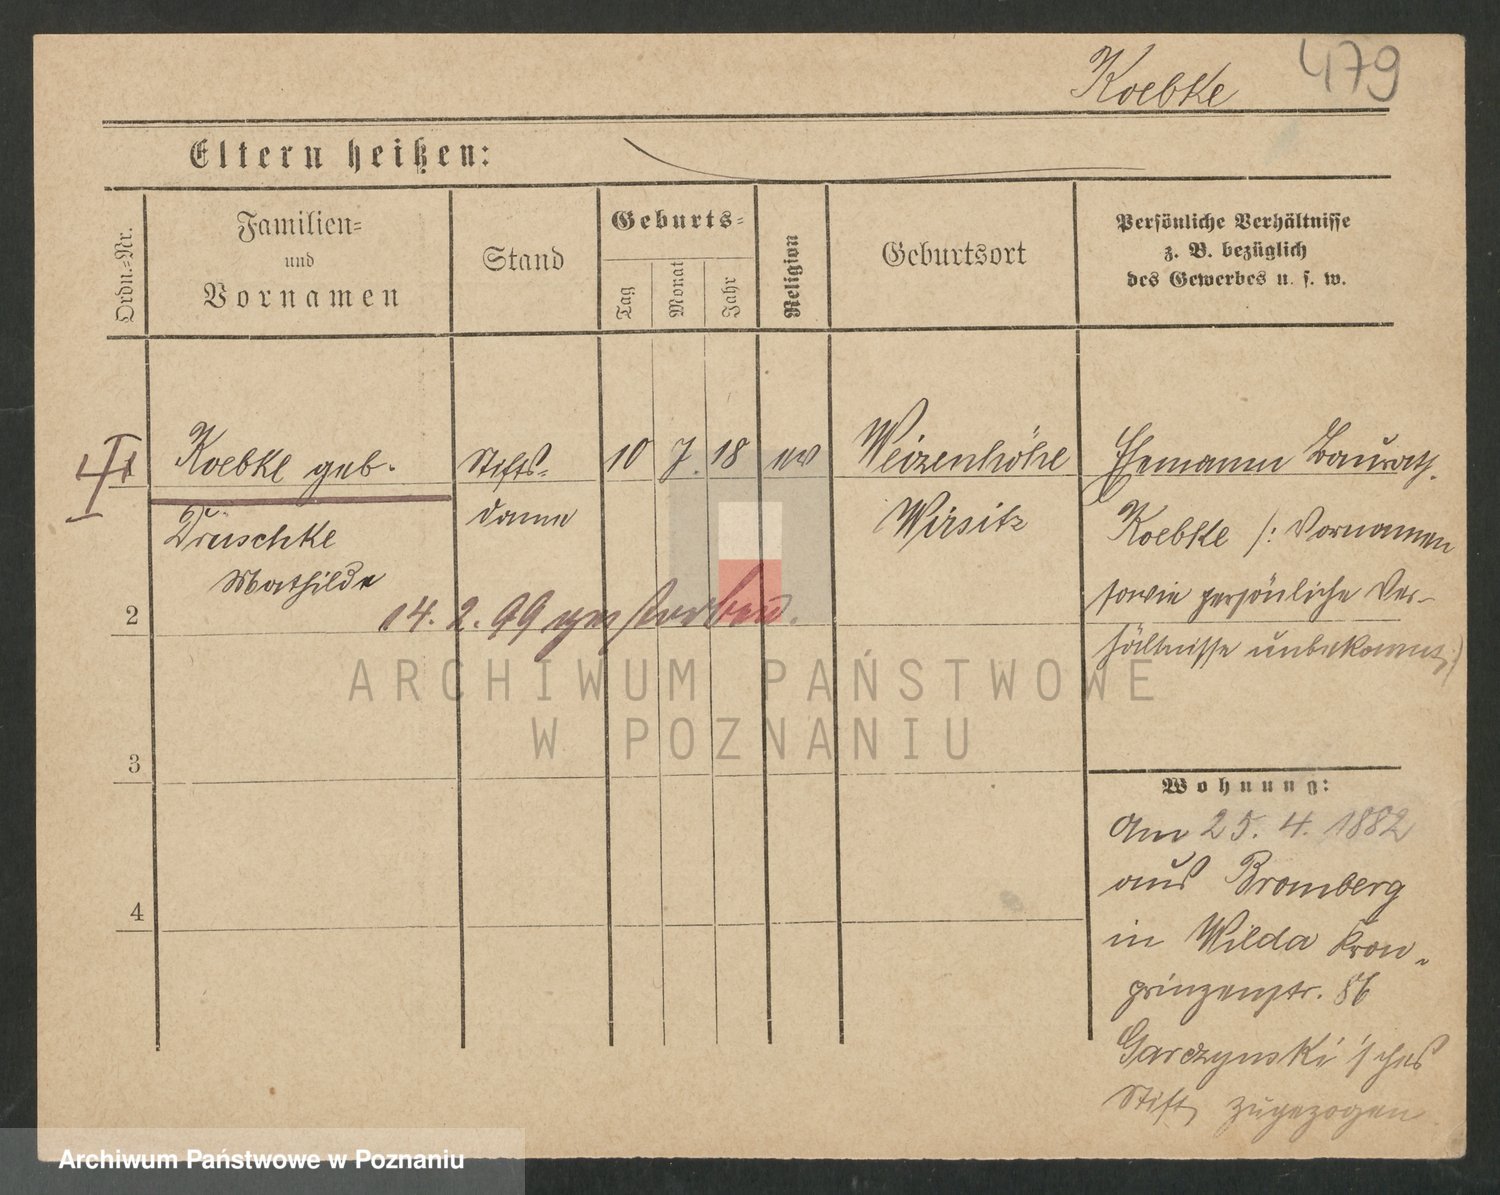 Koebke 479
Eltern heißen:
Ordn.-Nr.
Familien-
und
Vornamen
Stand
Geburts-
Tag
Monat
Jahr
Religion
Geburtsort
Persönliche Verhältnisse
z. B. bezüglich
des Gewerbes u. s. w.
Koebke geb. Stifts- 10 7. 18 ev Weizenhöhe Ehemann Baurath
Druschke dame Wirsitz Koebke /: Vornamen
Mathilde sowie persönliche Ver-
2 14. 2. 99 gestorben. hältnisse unbekannt :/
ARCHIWUM PAŃSTWOWE
W POZNANIU
3
Wohnung:
Am 25. 4. 1882
aus Bromberg
4
in Wilda Kron-
prinzenstr. 86
Garczynski'sches
Stift zugezogen
Archiwum Państwowe w Poznaniu